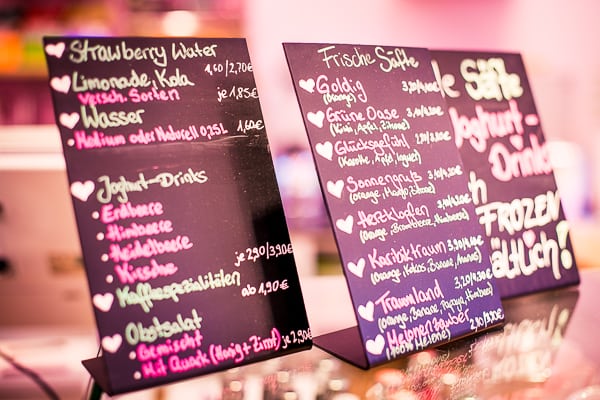 Strawberry Water
1,60/2,70€
Limonade, Kola
Versch. Sorten je 1,85€
Wasser
Medium oder Naturell 0,25L 1,60€
Joghurt-Drinks
Erdbeere
Himbeere
Heidelbeere
Kirsche je 2,90/3,90€
Kaffeespezialitäten
ab 1,90€
Obstsalat
Gemischt
Mit Quark (Honig+Zimt) je 2,90€
Frische Säfte
Goldig
(Orange)
Grüne Oase
(Kiwi, Apfel, Zitrone)
Glücksgefühl
(Karotte, Apfel, Ingwer)
Sonnengruß
(Orange, Mango, Zitrone)
Herzklopfen
(Orange, Brombeere, Himbeere)
Karibiktraum
(Orange, Kokos, Banane, Ananas)
Traumland
(Orange, Banane, Papaya, Himbeere)
Melonenzauber
(100% Melone) 2,90/3,90€
Säfte
Joghurt-
Drinks
FROZEN
ältlich!